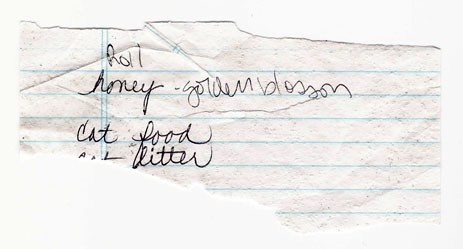 roll
honey - golden blosson
cat food
cat litter